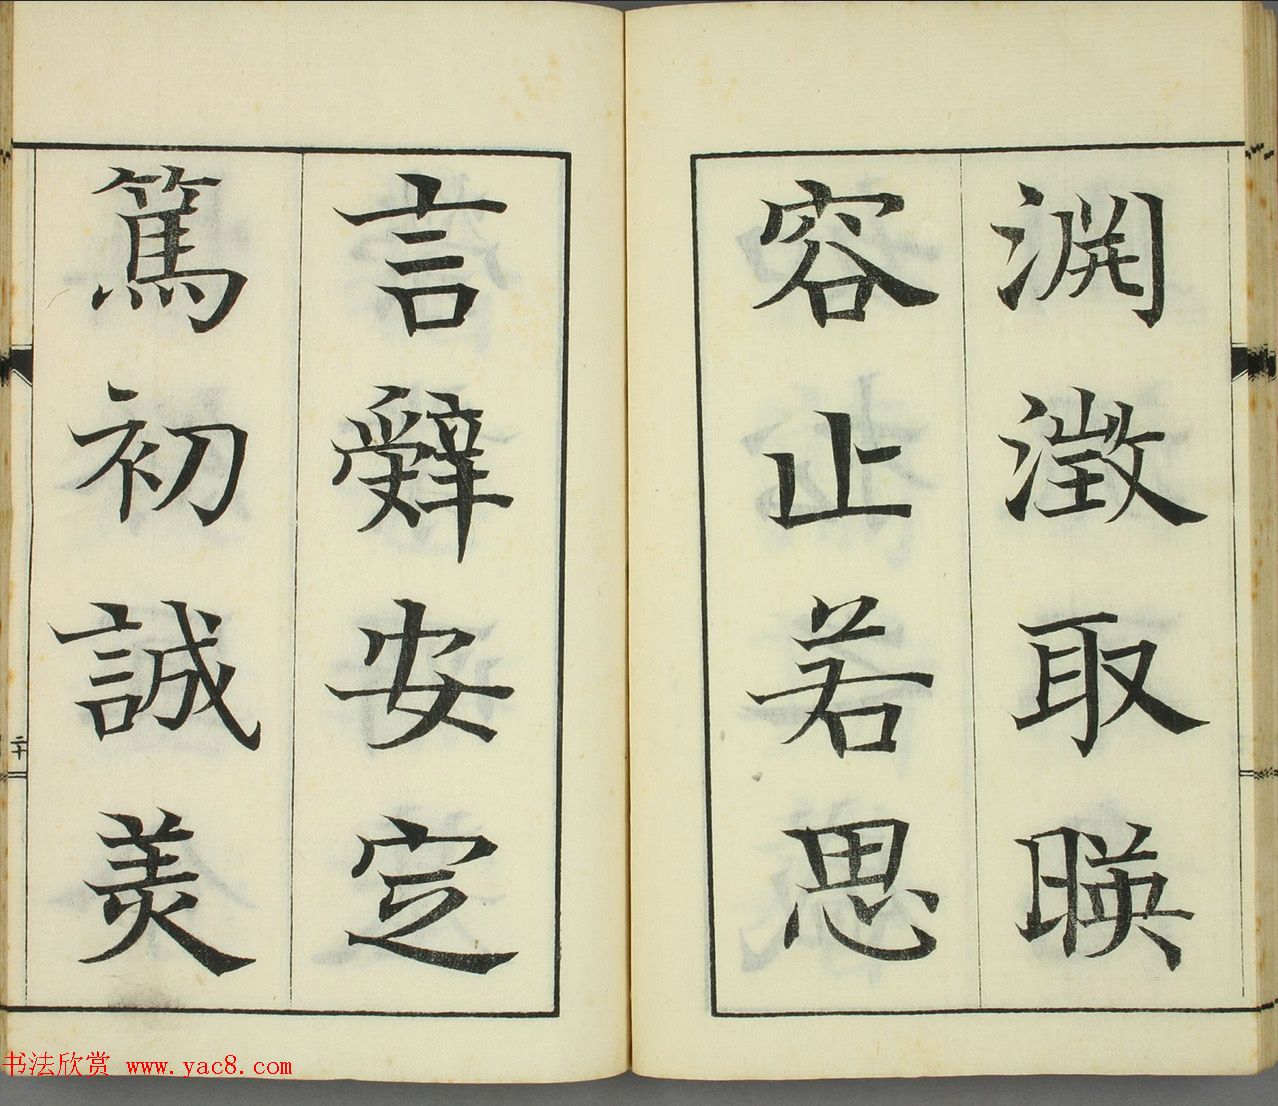 渊澂取暎
容止若思
言辤安定
篤初誠美
二十
书法欣赏 www.yac8.com